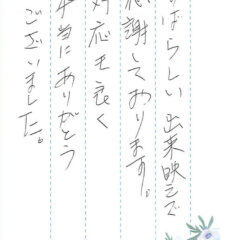 ばらしい出来映えで
感謝しております。
対応も良く
本当にありがとう
ございました。